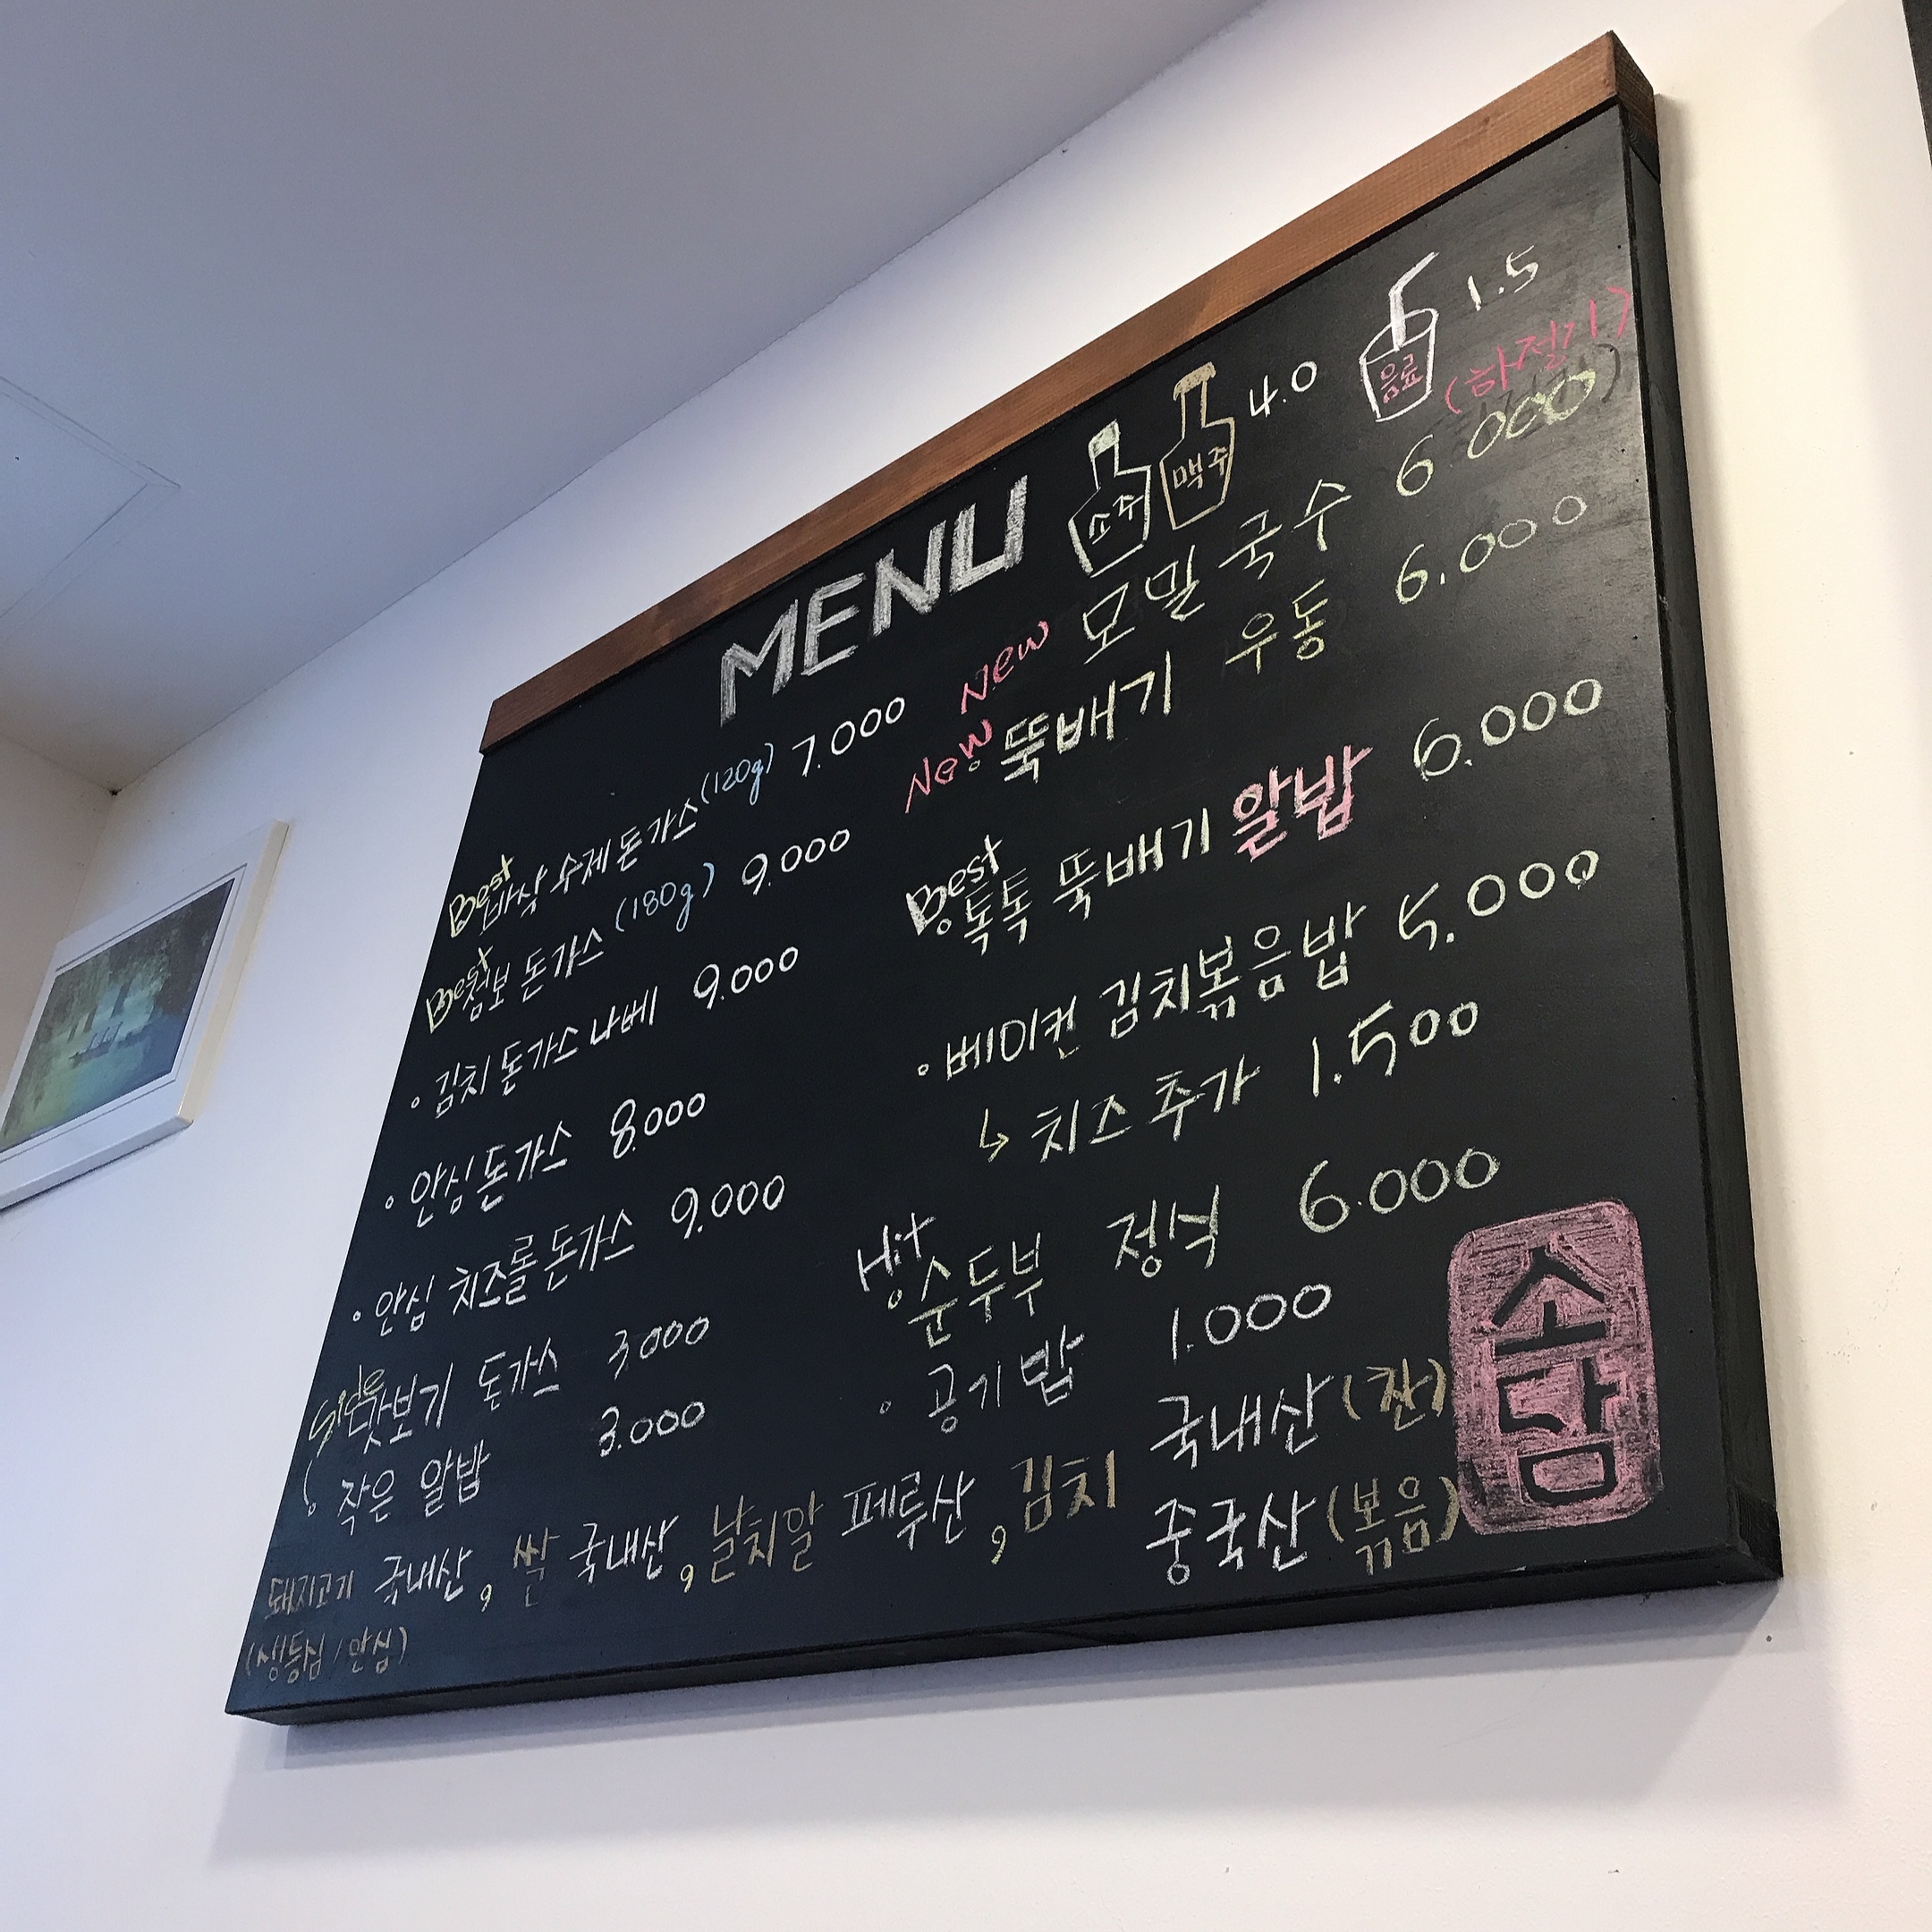 MENU
소주 맥주 4.0
음료 1.5
Best
바삭 수제 돈가스 (120g) 7.000
Best
점보 돈가스 (180g) 9.000
◦ 김치 돈가스 나베 9.000
◦ 안심 돈가스 8.000
◦ 안심 치즈롤 돈가스 9.000
맛보기 돈가스 3.000
작은 알밥 3.000
(하절기)
New 모밀 국수 6.000
New
◦ 뚝배기 우동 6.000
Best
◦ 톡톡 뚝배기 알밥 6.000
◦ 베이컨 김치볶음밥 5.000
↳ 치즈 추가 1.500
Hit
◦ 순두부 정식 6.000
◦ 공기밥 1.000
돼지고기 국내산, 쌀 국내산, 날치알 페루산, 김치 국내산 (찬)
중국산 (볶음)
(생등심 / 안심)
소담